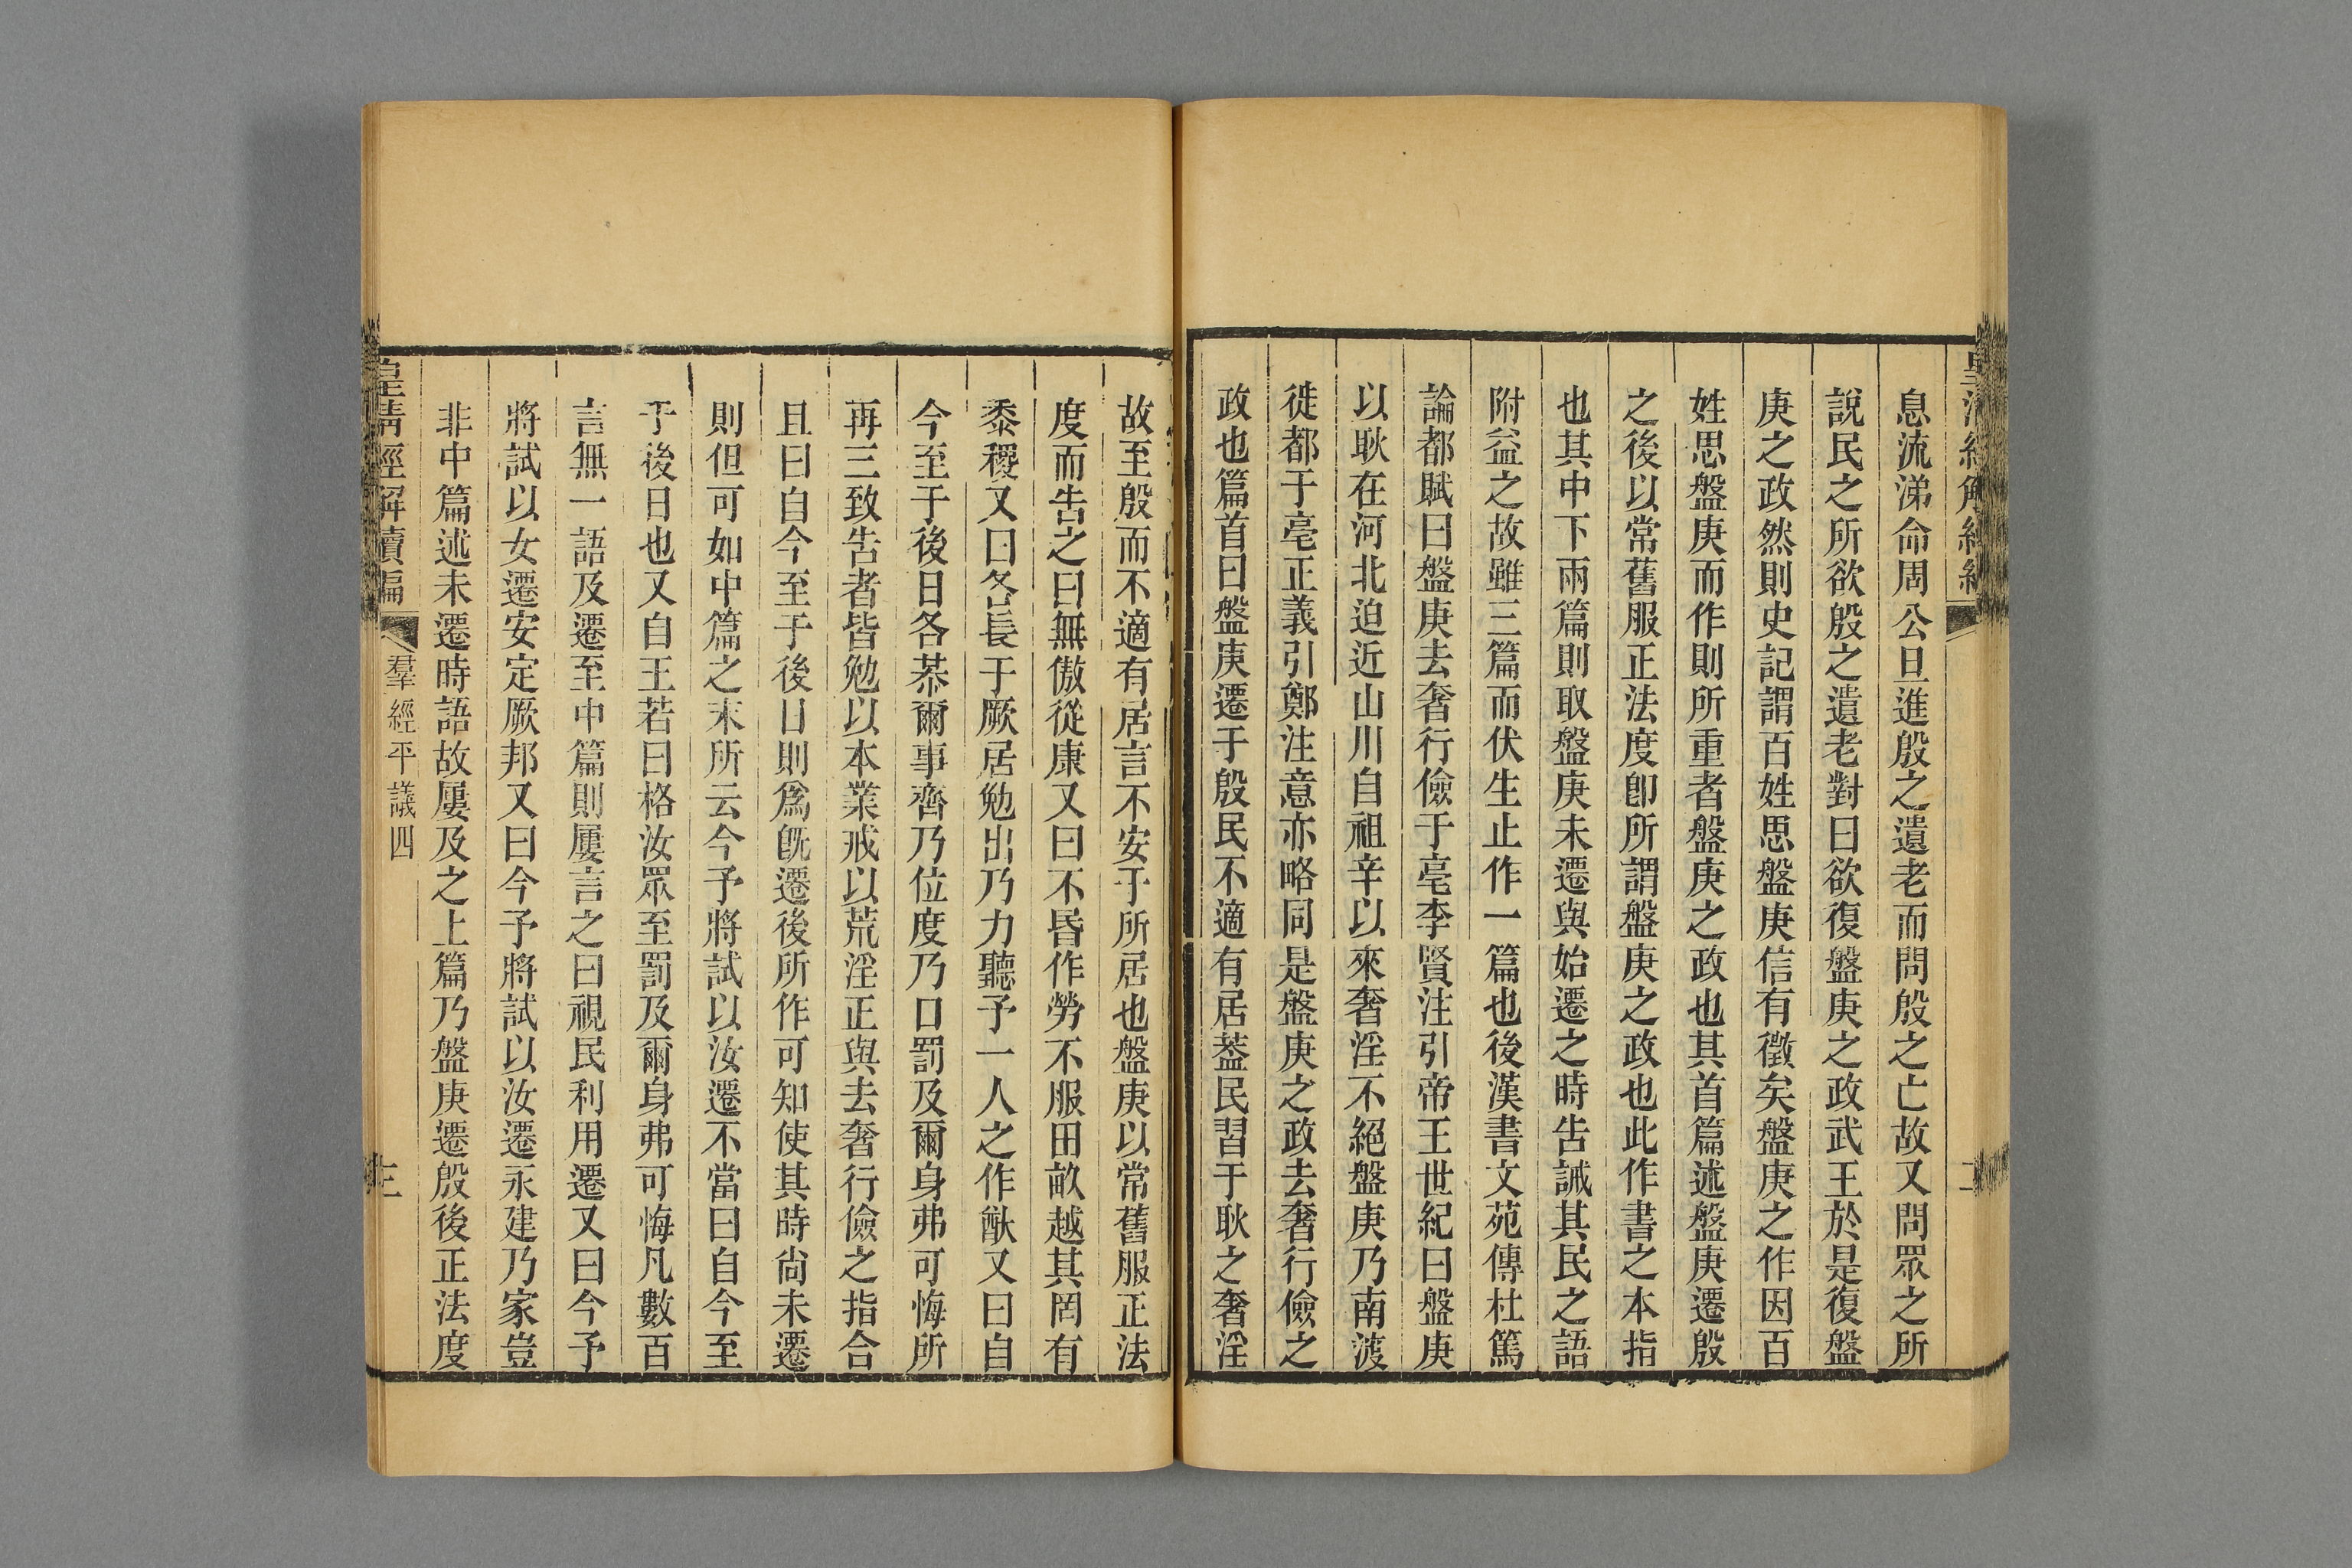 息流涕命周公旦進殷之遺老而問殷之亡故又問眾之所
說民之所欲殷之遺老對曰欲復盤庚之政武王於是復盤
庚之政然則史記謂百姓思盤庚信有徵矣盤庚之作因百
姓思盤庚而作則所重者盤庚之政也其首篇述盤庚遷殷
之後以常舊服正法度卽所謂盤庚之政也此作書之本指
也其中下兩篇則取盤庚未遷與始遷之時告誡其民之語
附益之故雖三篇而伏生止作一篇也後漢書文苑傳杜篤
論都賦曰盤庚去奢行儉于亳李賢注引帝王世紀曰盤庚
以耿在河北迫近山川自祖辛以來奢淫不絕盤庚乃南渡
徙都于亳正義引鄭注意亦略同是盤庚之政去奢行儉之
政也篇首曰盤庚遷于殷民不適有居葢民習于耿之奢淫
故至殷而不適有居言不安于所居也盤庚以常舊服正法
度而告之曰無傲從康又曰不昏作勞不服田畝越其罔有
黍稷又曰各長于厥居勉出乃力聽予一人之作猷又曰自
今至于後日各恭爾事齊乃位度乃口罰及爾身弗可悔所
再三致告者皆勉以本業戒以荒淫正與去奢行儉之指合
且曰自今至于後日則爲旣遷後所作可知使其時尙未遷
則但可如中篇之末所云今予將試以汝遷不當曰自今至
于後日也又自王若曰格汝眾至罰及爾身弗可悔凡數百
言無一語及遷至中篇則屢言之曰視民利用遷又曰今予
將試以女遷安定厥邦又曰今予將試以汝遷永建乃家豈
非中篇述未遷時語故屢及之上篇乃盤庚遷殷後正法度
皇淸經解續編
羣經平議四
三